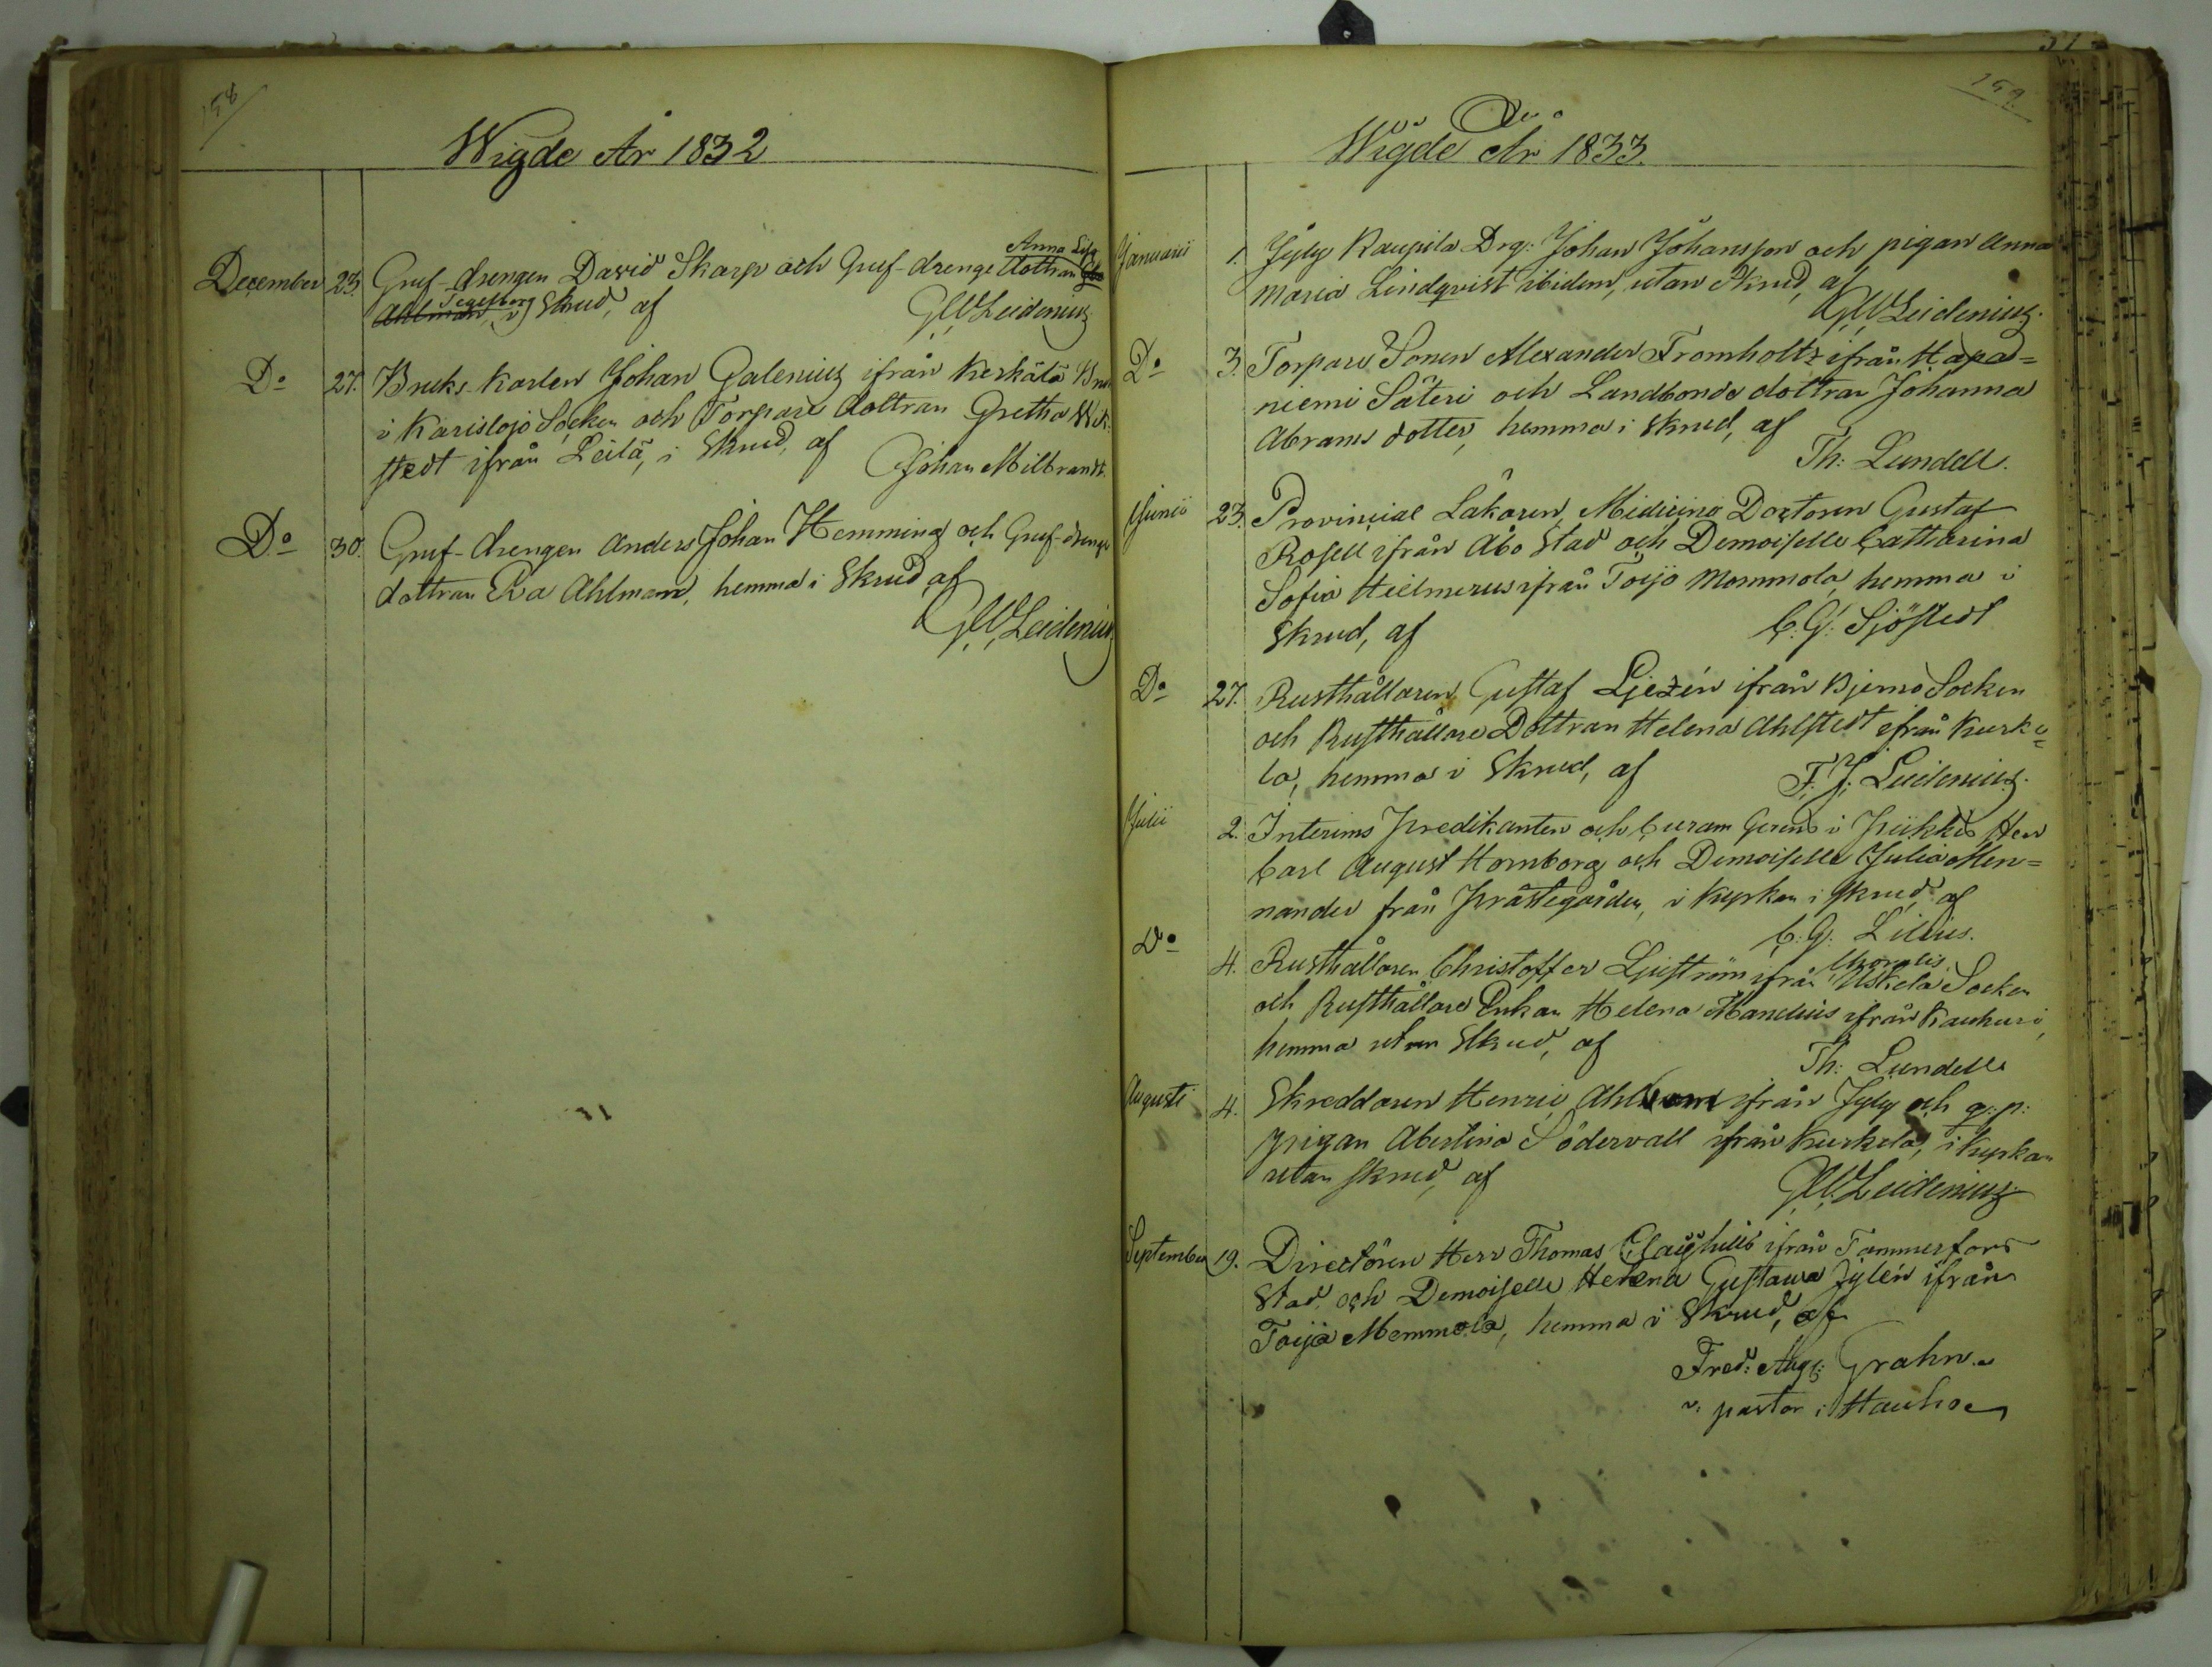 158
Wigde År 1832
December 23. Gruf-drengen David Skarp och Gruf-drenge dottran
Anna Lisa
Ahlman, i Skrud, af
Tegelberg
GWLeidenius
Do 27. Bruks-Karlen Johan Galenius ifrån Kerkälä Bruk
i Karislojo Socken och Torpare dottran Gretha Wik-
stedt ifrån Leilä, i Skrud, af
Johan Milbrandt.
Do 30. Gruf-drengen Anders Johan Hemming och Gruf-drenge
dottran Eva Ahlman, hemma i Skrud af
GWLeidenius
159
Wigde År 1833.
Januarii 1. Jyly Kaupila Drg: Johan Johansson och pigan Anna
Maria Lindqvist ibidem, utan Skrud, af
GWLeidenius.
Do 3. Torpare Sonen Alexander Fromholtz ifrån Hapa-
niemi Säteri och Landbonde dottran Johanna
Abrams dotter, hemma i Skrud, af
Th: Lundell.
Junii 23. Provincial Läkaren, Midicine Doctoren Gustaf
Rosell ifrån Åbo Stad och Demoiselle Catharina
Sofia Hellmerus ifrån Toijo Mommola, hemma i
Skrud, af
C. G. Sjöstedt
Do 27. Rusthållaren Gustaf Ljezén ifrån Bjerno Socken
och Rusthållare Dottran Helena Ahlstedt ifrån Kurke-
la, hemma i Skrud, af
F. J. Leidenius.
Julii 2. Interims Predikanten och Curam Gerens i Piikkis Herr
Carl August Hornborg och Demoiselle Julia Men-
nander från Prästegården, i Kyrkan i Skrud af
C. G. Lilius.
Do 4. Rusthållaren Christoffer Ljuström ifrån Uskela Socken
och Rusthållare Enkan Helena Mandelius ifrån Kaukuri,
hemma utan Skrud, af
Th: Lundell
Augusti 4. Skreddaren Henric ifrån Jyly och q: p:
pigan Abertina Södervall ifrån Kurkela, i Kyrkan
utan Skrud, af
GWLeidenius
September 19. Directören Herr Thomas Clayhills ifrån Tammerfors
Stad och Demoiselle Helena Gustawa Jylén ifrån
Toijo Memmola, hemma i Skrud, af
Fred: Aug: Grahn
v: pastor i Hauho